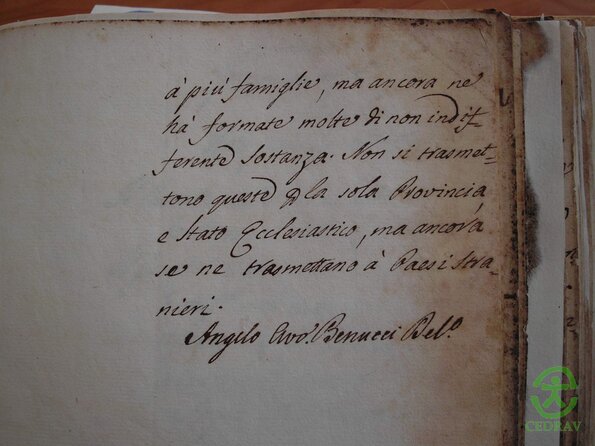 à più famiglie, ma ancora ne
hà formate molte di non indif-
ferente sostanza. Non si trasmet-
tono queste p la sola Provincia
e Stato Ecclesiastico, ma ancora
se ne trasmettano à Paesi Stra-
nieri.
Angelo Avvo. Benucci Delo.
CEDRAV